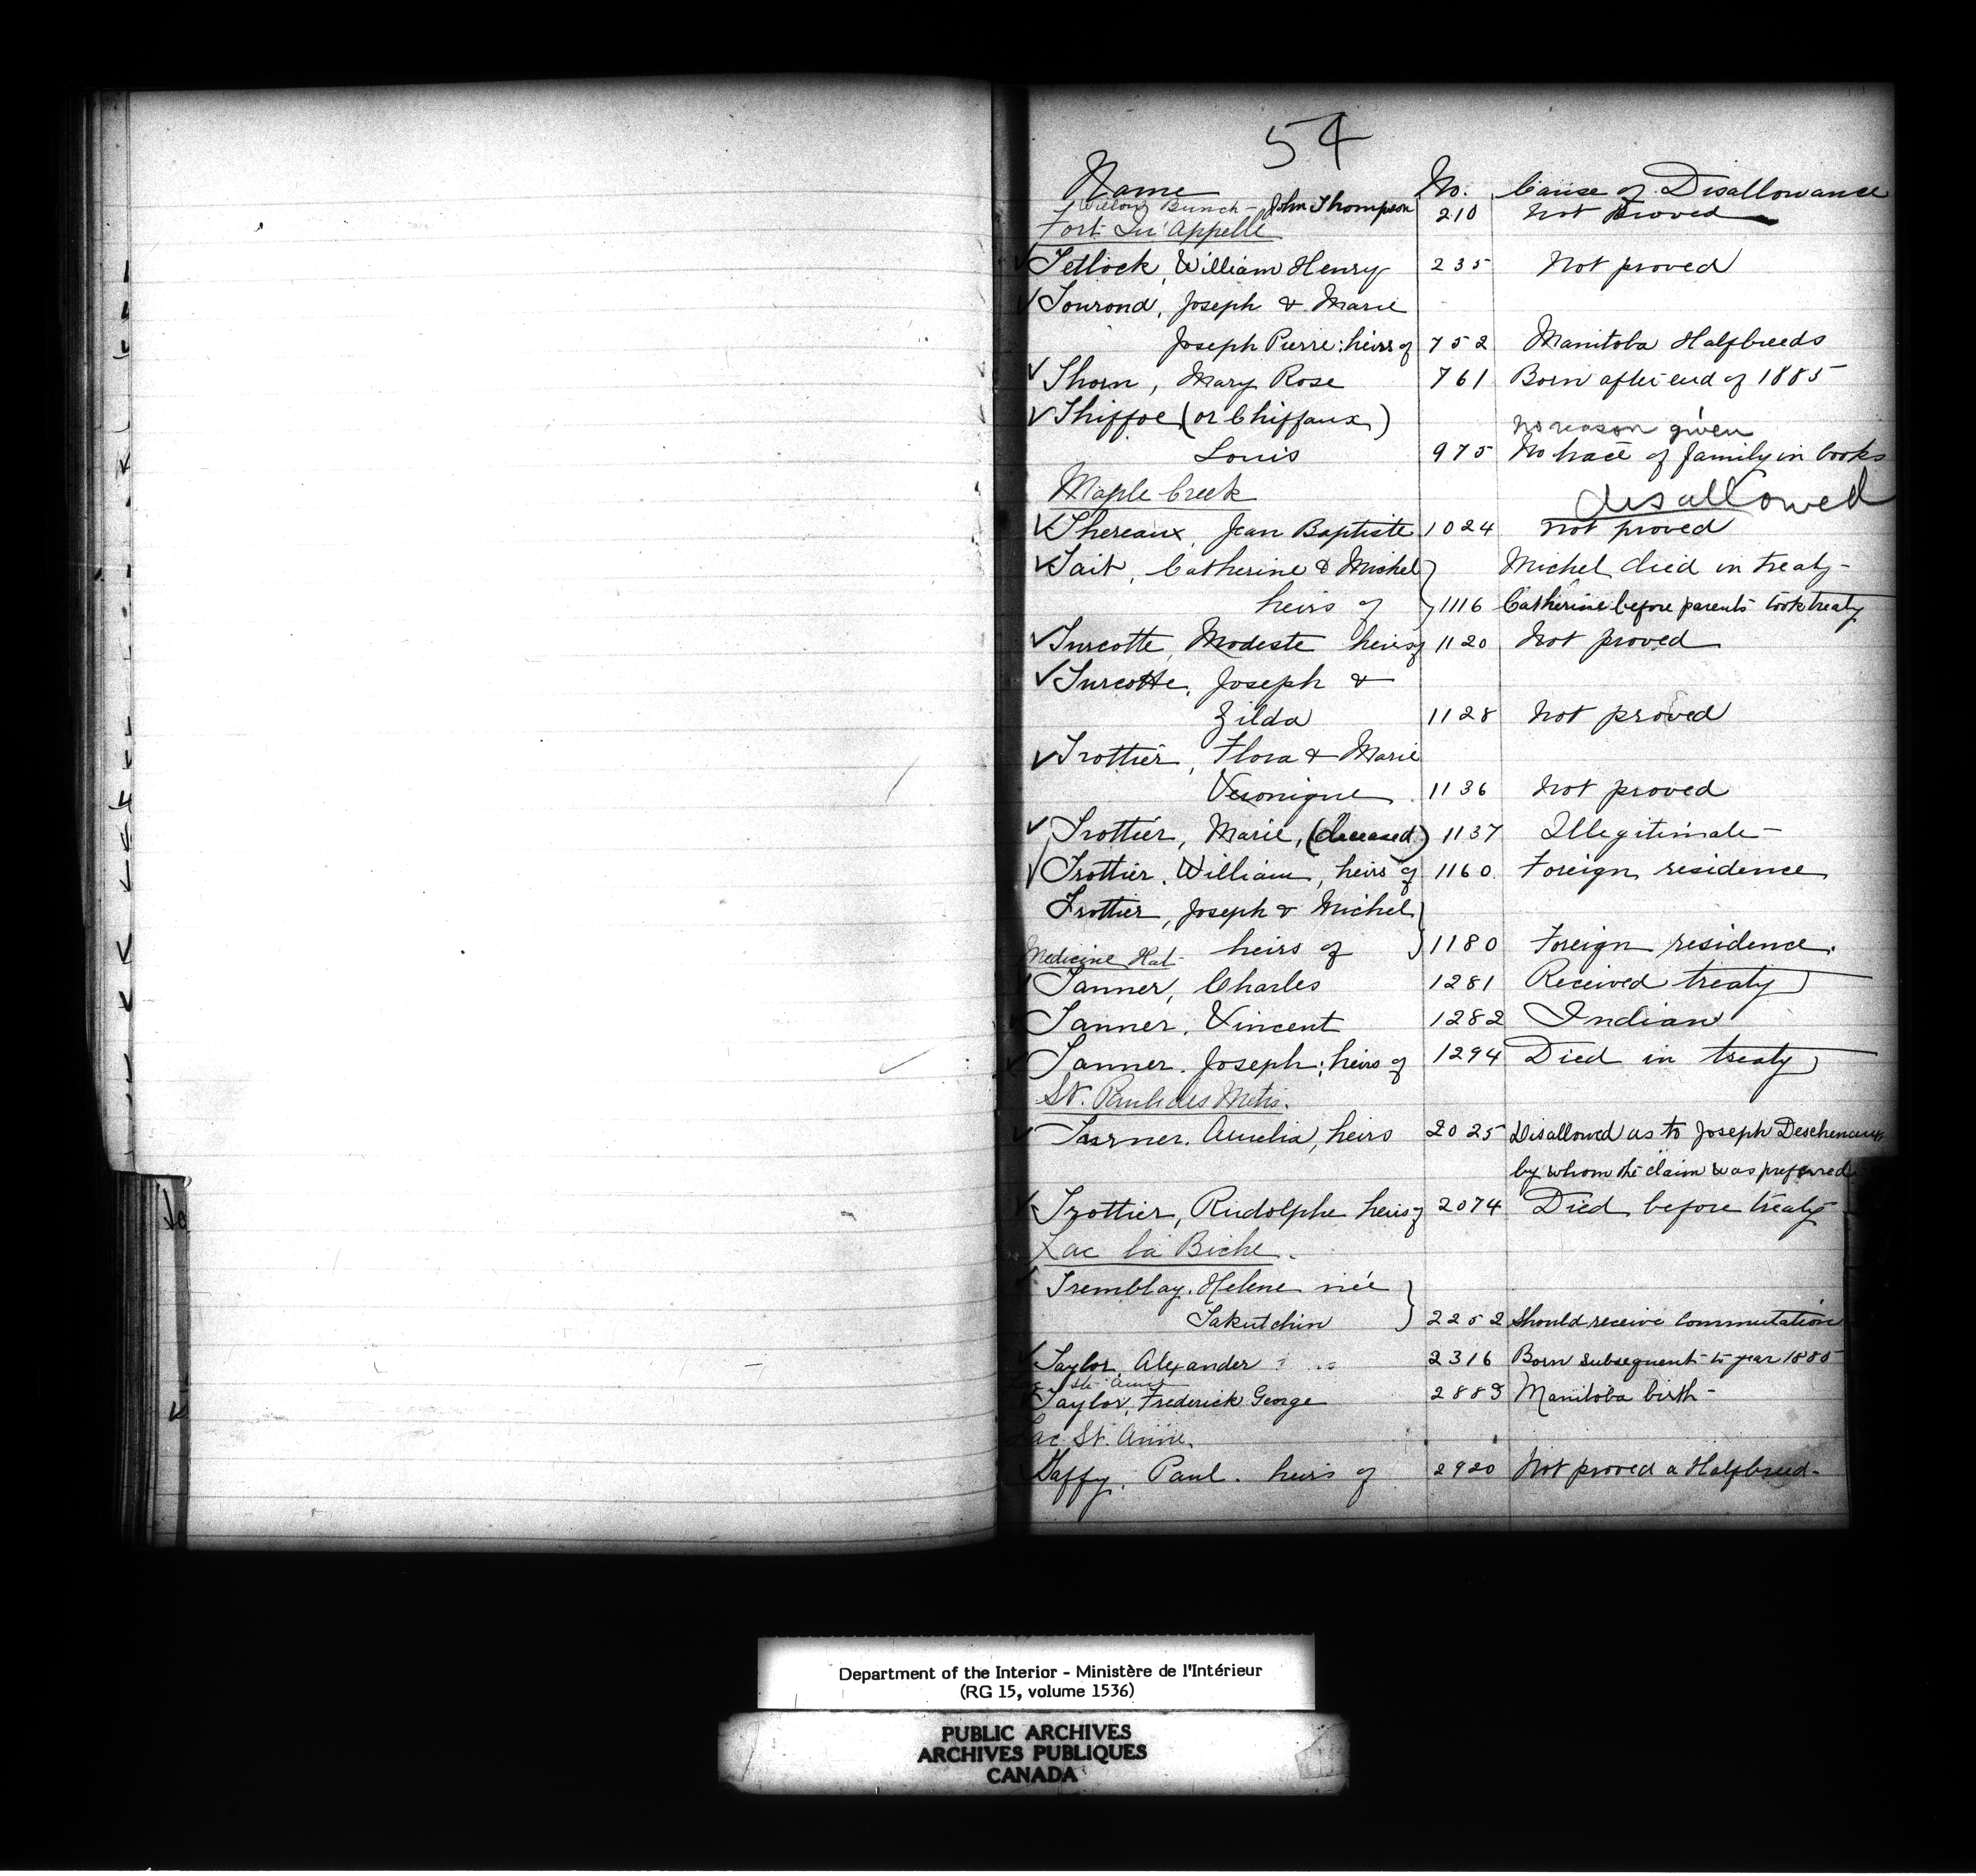 54
Name No. Cause of Disallowance
Willow Bunch - John Thompson 210 Not Proved
Fort Qu'Appelle
Tetlock, William Henry 235 Not proved
Tourond, Joseph & Marie
Joseph Pierre: heirs of 752 Manitoba Halfbreeds
Thorn, Mary Rose 761 Born after end of 1885
Thiffoe (or Chiffaux)
no reason given
Louis 975 No trace of family in books
Maple Creek
disallowed
Thereaux, Jean Baptiste 1024 Not proved
Tait, Catherine & Michel Michel died in treaty -
heirs of 1116 Catherine before parents took treaty
Turcotte, Modeste heirs of 1120 Not proved
Turcotte, Joseph &
Zilda 1128 Not proved
Trottier, Flora & Marie
Veronique 1136 Not proved
Trottier, Marie, (deceased) 1137 Illegitimate -
Trottier, William, heirs of 1160 Foreign residence
Trottier, Joseph & Michel
Medicine Hat - heirs of 1180 Foreign residence.
Tanner, Charles 1281 Received treaty
Tanner, Vincent 1282 Indian
Tanner, Joseph; heirs of 1294 Died in treaty
St. Paul des Metis.
Amelia, heirs 2025 Disallowed as to Joseph Deschenaux
by whom the claim was preferred
Trottier, Rudolphe heirs of 2074 Died before treaty
Lac la Biche.
Tremblay, Helene née
Takutchin 2252 Should receive Commutation
Taylor, Alexander 2316 Born subsequent to year 1885
Ste Anne
Taylor, Frederick George 2883 Manitoba birth -
Lac St. Anne.
Taffy, Paul. heirs of 2920 Not proved a Halfbreed -
Department of the Interior - Ministère de l'Intérieur
(RG 15, volume 1536)
PUBLIC ARCHIVES
ARCHIVES PUBLIQUES
CANADA